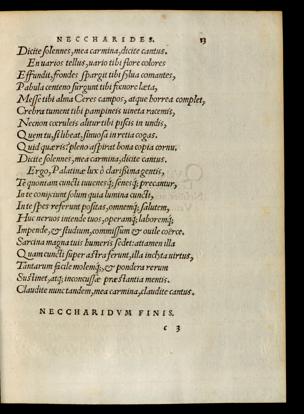 NECCHARIDES. 13
Dicite solennes, mea carmina, dicite cantus.
En uarios tellus, uario tibi flore colores
Effundit, frondes spargit tibi sylua comantes,
Pabula centeno surgunt tibi foenore laeta,
Messe tibi alma Ceres campos, atque horrea complet,
Crebra tument tibi pampineis uineta racemis,
Necnon coeruleis alitur tibi piscis in undis,
Quem tu, si libeat, sinuosa in retia cogas.
Quid quaeris? pleno aspirat bona copia cornu.
Dicite solennes, mea carmina, dicite cantus.
Ergo, Palatinae lux ò clarissima gentis,
Te quoniam cuncti iuuenesq; senesq; precantur,
In te conijciunt solum quia lumina cuncti,
In te spes referunt positas, omnemq; salutem,
Huc neruos intende tuos, operamq; laboremq;
Impende, & studium, commissum & ouile coërce.
Sarcina magna tuis humeris sedet: attamen illa
Quam cuncti super astra ferunt, illa inclyta uirtus,
Tantarum facile molemq;, & pondera rerum
Sustinet, atq; inconcussae praestantia mentis.
Claudite nunc tandem, mea carmina, claudite cantus.
NECCHARIDVM FINIS.
c 3